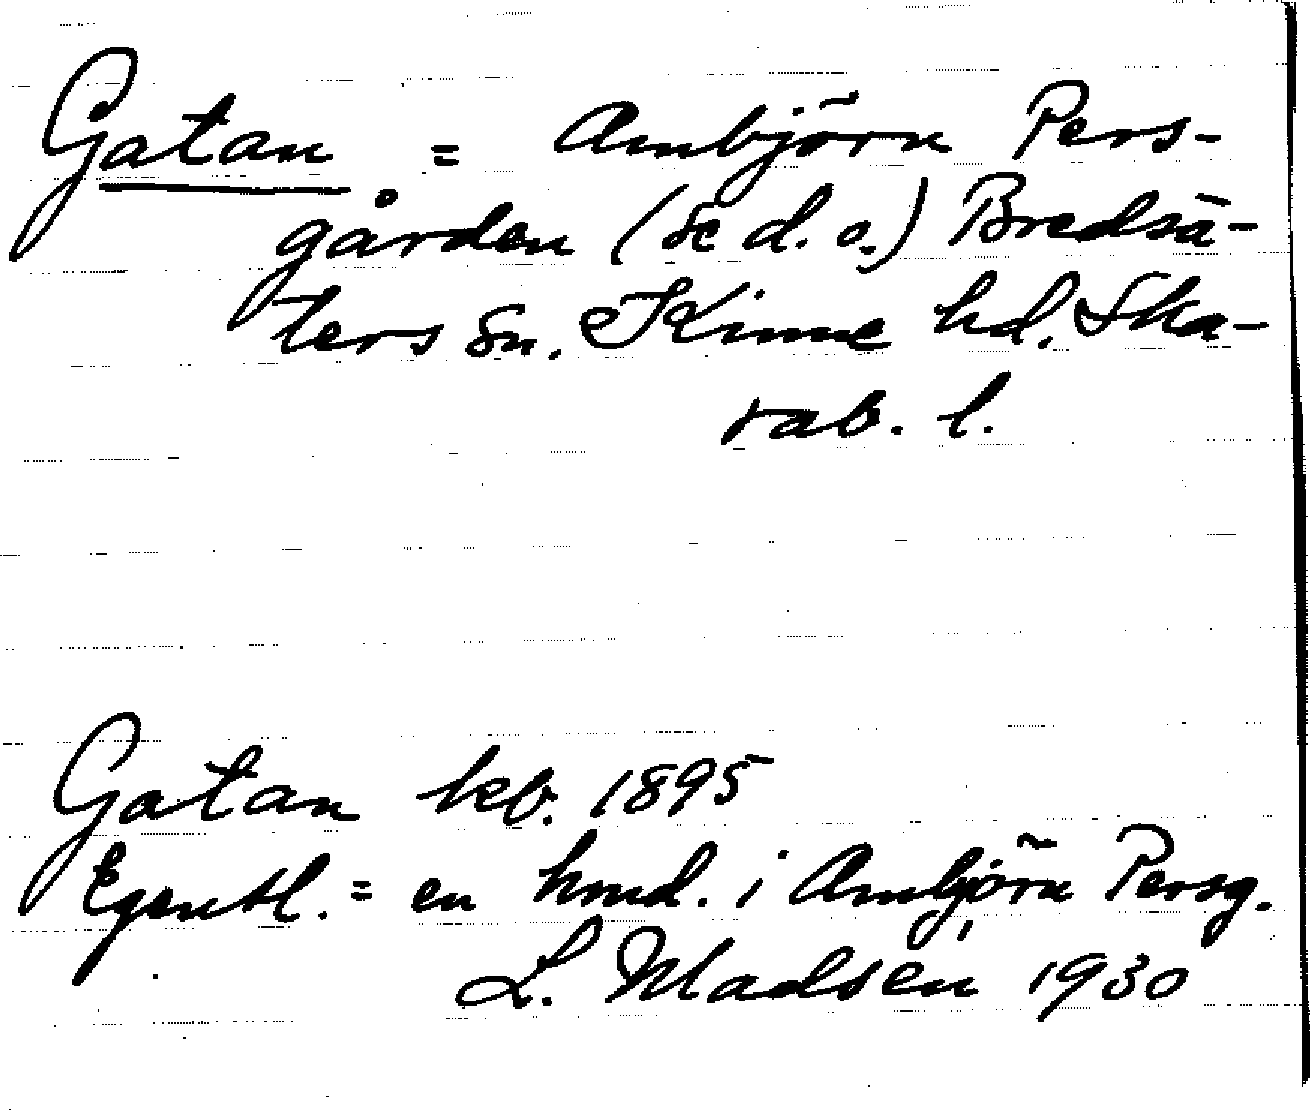 Gatan = Ambjörn Pers-
gården (se d. o.) Bredsä-
ters sn. Kinne hd. Ska-
rab. l.
Gatan keb. 1895
Egentl. = en hmd. i Ambjörn Persg.
L. Madsén 1930